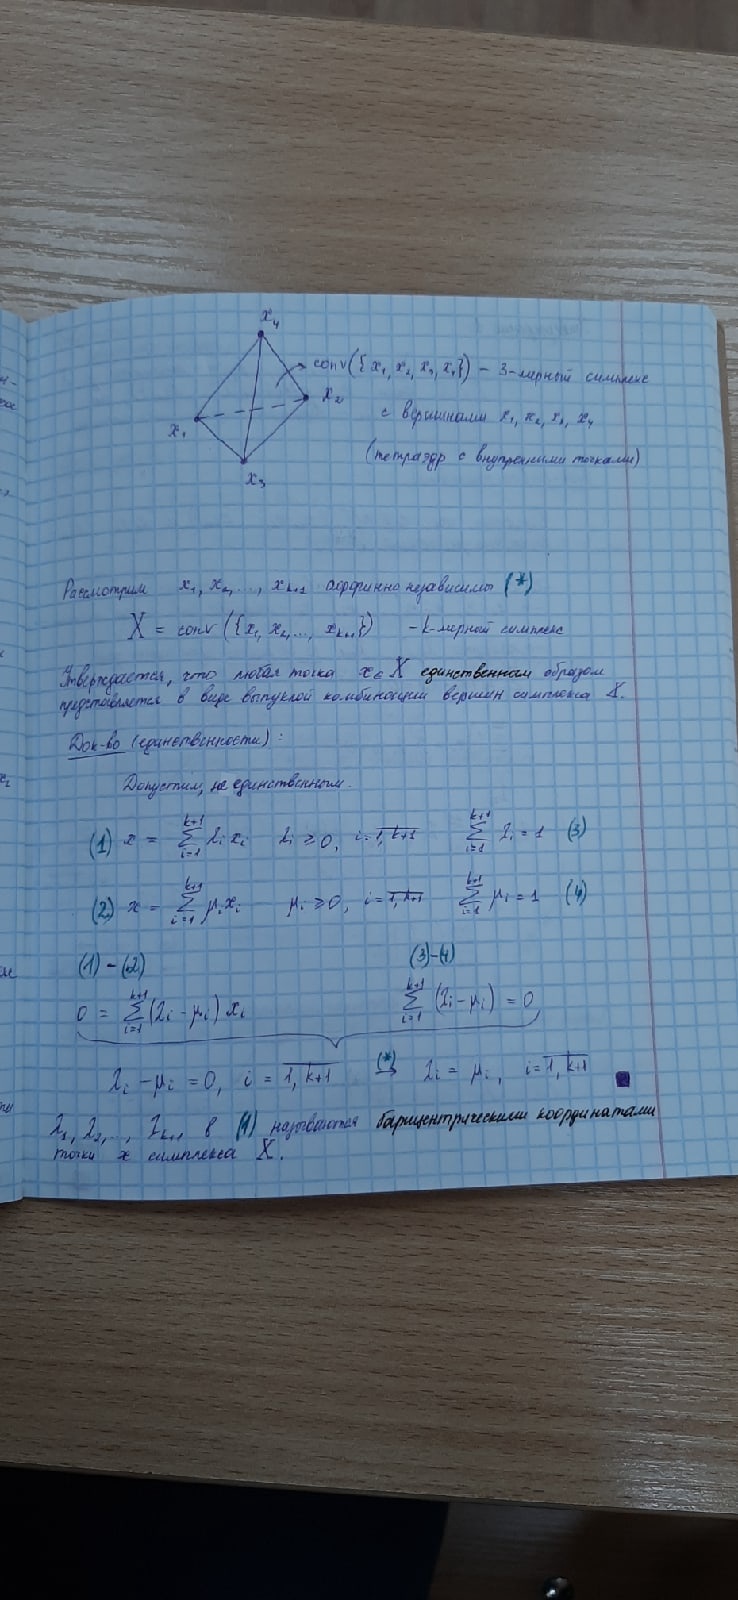 x₄
conv({x₁, x₂, x₃, x₄}) – 3-мерный симплекс
x₂
с вершинами x₁, x₂, x₃, x₄
x₁
(тетраэдр с внутренними точками)
x₃
Рассмотрим x₁, x₂, ..., xₖ₊₁ аффинно независимы (*)
X = conv({x₁, x₂, ..., xₖ₊₁}) – k-мерный симплекс
Утверждается, что любая точка x ∈ X единственным образом
представляется в виде выпуклой комбинации вершин симплекса X.
Док-во (единственности):
Допустим, не единственным.
(1) x = ∑_{i=1}^{k+1} λᵢ xᵢ λᵢ ≥ 0, i = \overline{1, k+1} ∑_{i=1}^{k+1} λᵢ = 1 (3)
(2) x = ∑_{i=1}^{k+1} μᵢ xᵢ μᵢ ≥ 0, i = \overline{1, k+1} ∑_{i=1}^{k+1} μᵢ = 1 (4)
(1) – (2) (3) – (4)
0 = ∑_{i=1}^{k+1} (λᵢ – μᵢ) xᵢ ∑_{i=1}^{k+1} (λᵢ – μᵢ) = 0
λᵢ – μᵢ = 0, i = \overline{1, k+1} (*) → λᵢ = μᵢ, i = \overline{1, k+1} ■
λ₁, λ₂, ..., λₖ₊₁ в (1) называются барицентрическими координатами
точки x симплекса X.